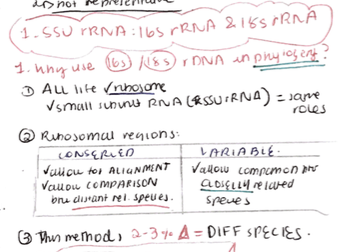 is not representative
1. SSU rRNA: 16s rRNA & 18s rRNA
1. Why use 16s / 18s rDNA in phylogeny?
① ALL life √ ribosome
√ small subunit RNA (SSU rRNA) = same roles
② Ribosomal regions:
CONSERVED
√ allow for ALIGNMENT
√ allow COMPARISON
btw distant rel. species.
VARIABLE:
√ allow comparison btw
CLOSELY related
species
③ This method, 2-3% Δ = DIFF SPECIES.